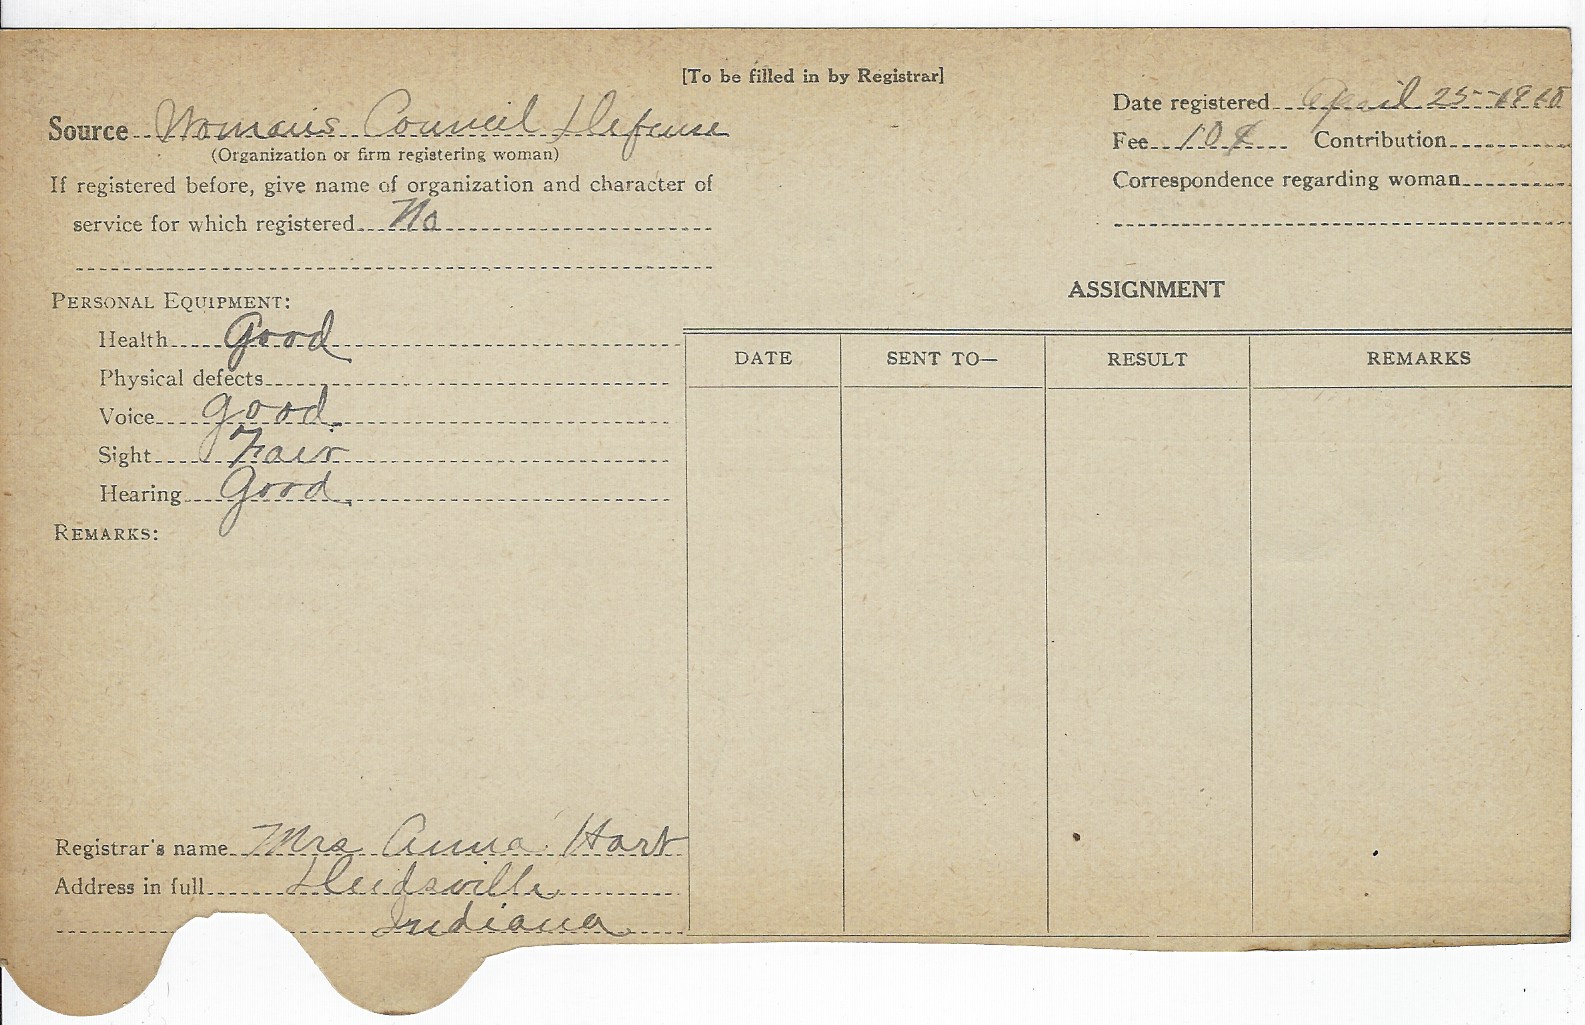 [To be filled in by Registrar]
Source Woman's Council Defense
(Organization or firm registering woman)
If registered before, give name of organization and character of
service for which registered No
Date registered April 25-1918
Fee 10¢ Contribution
Correspondence regarding woman
PERSONAL EQUIPMENT:
Health Good
Physical defects
Voice good
Sight Fair
Hearing Good
REMARKS:
ASSIGNMENT
DATE SENT TO— RESULT REMARKS
Registrar's name Mrs Anna Hart
Address in full
Indiana